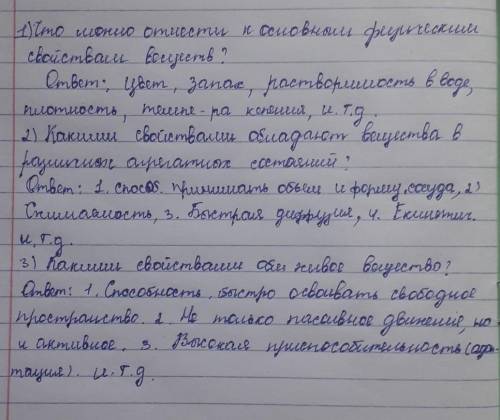 1) Что можно отнести к основным физическим
свойствам веществ?
Ответ: Цвет, запах, растворимость в воде,
плотность, темпе-ра кипения, и.т.д.
2) Какими свойствами обладают вещества в
различных агрегатных состояний?
Ответ: 1. способ. принимать объем и форму сосуда, 2)
Сжимаемость, 3. Быстрая диффузия, 4.
и.т.д.
3) Какими свойствами обл живое вещество?
Ответ: 1. Способность быстро осваивать свободное
пространство. 2. Не только пассивное движение, но
и активное. 3. Высокая приспособительность (адап
тация). и.т.д.